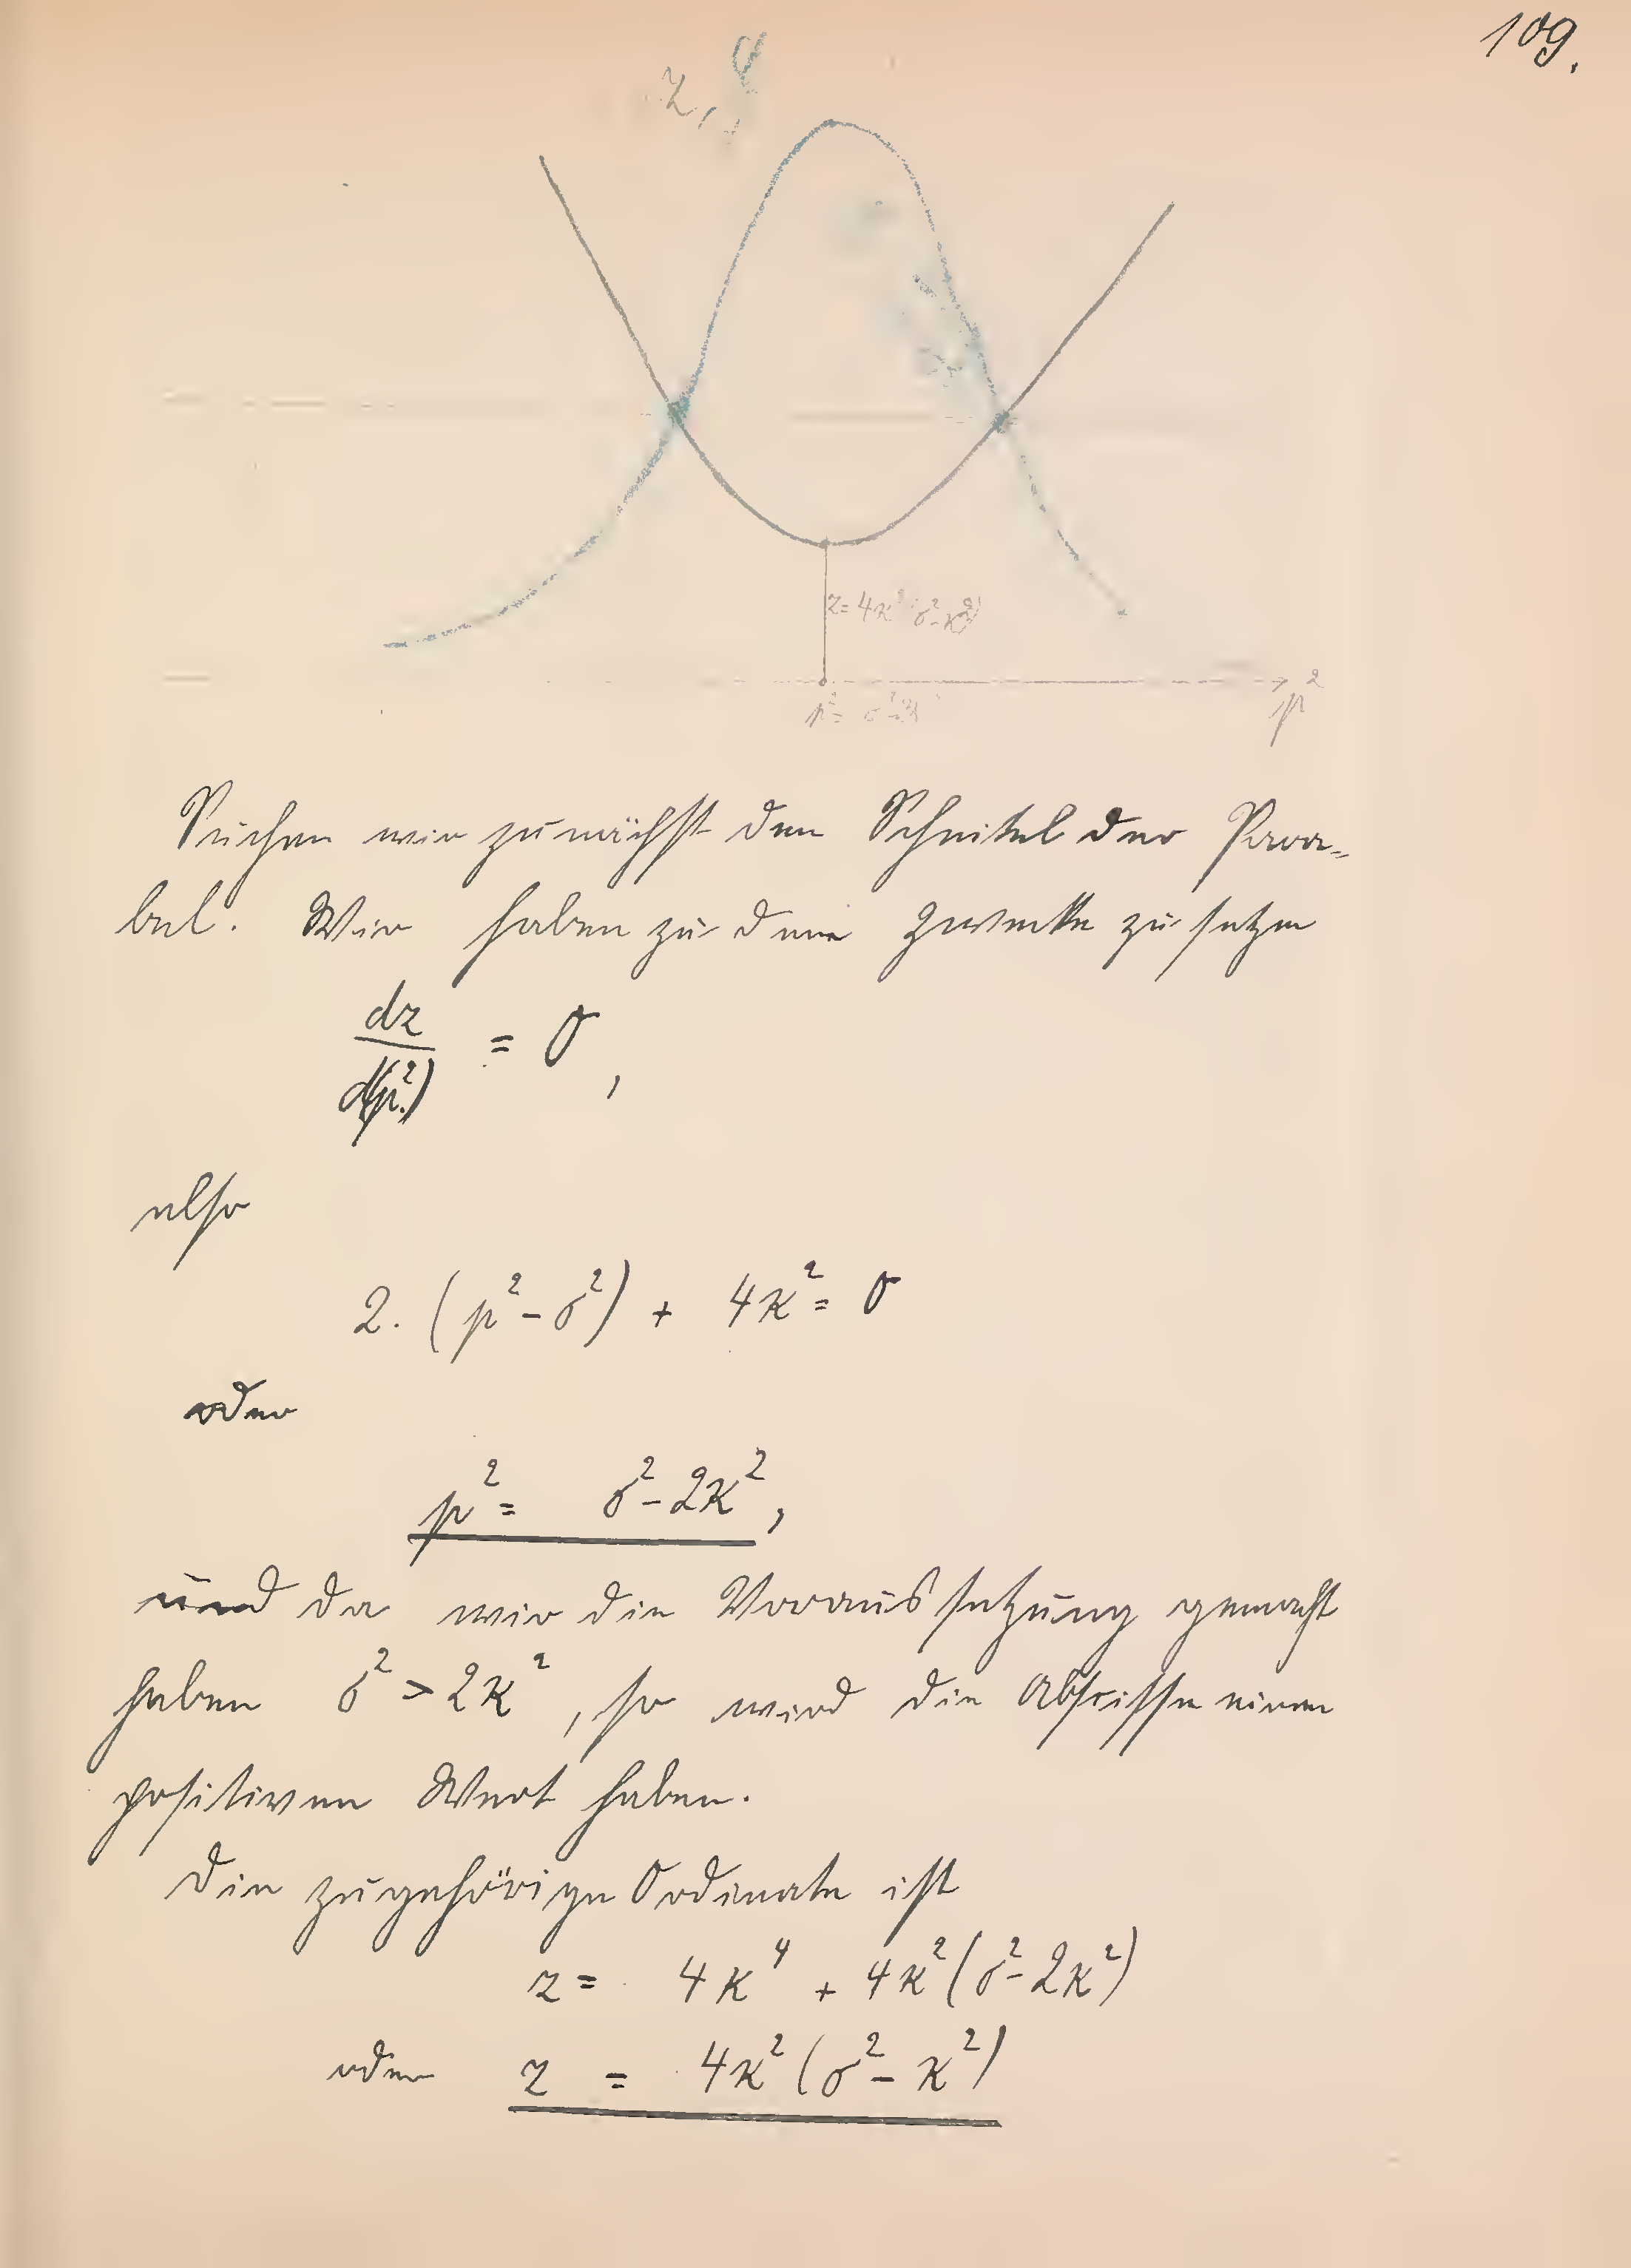 109.
z,
z = 4κ² (σ²-κ²)
p² = σ²-2κ²
p²
Suchen wir zunächst den Scheitel der Para-
bel. Wir haben zu dem Zwecke zu setzen
dz/d(p²) = 0,
also
2. (p² - σ²) + 4κ² = 0
oder
p² = σ² - 2κ²,
und da wir die Voraussetzung gemacht
haben σ² > 2κ², so wird die Abscisse einen
positiven Wert haben.
Die zugehörige Ordinate ist
z = 4κ⁴ + 4κ² (σ² - 2κ²)
oder z = 4κ² (σ² - κ²)